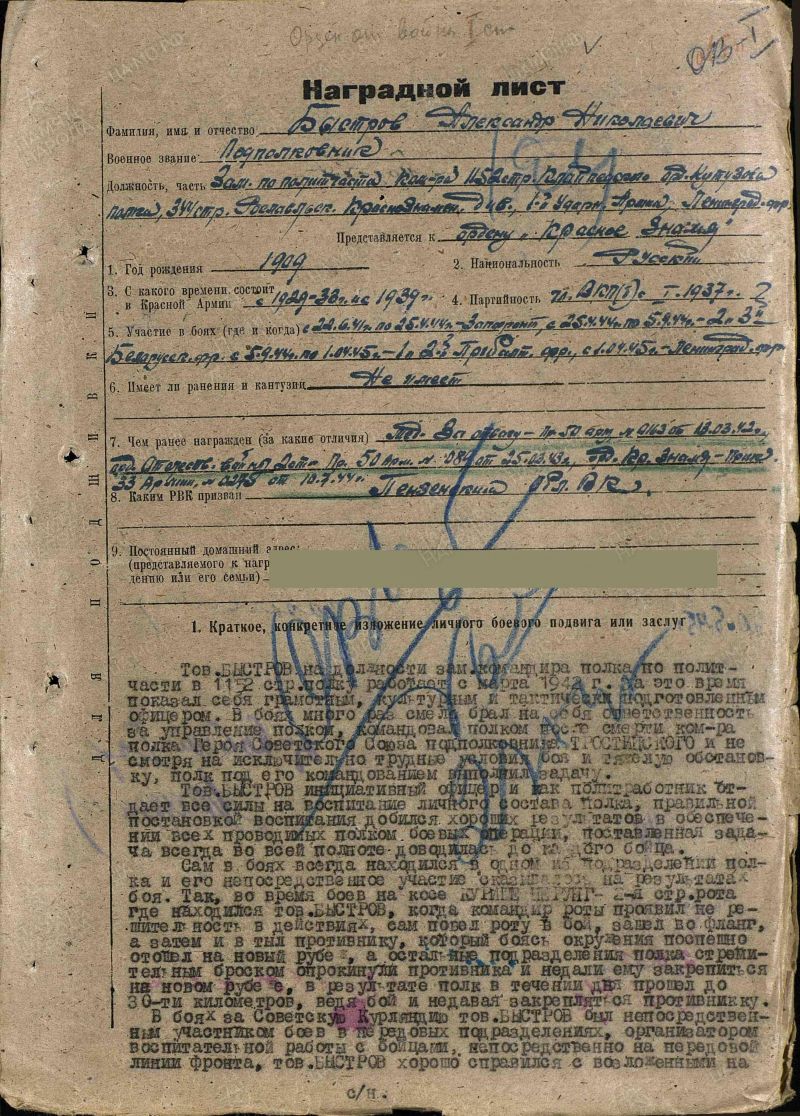 Орден от войны I ст
ОВ-I
Наградной лист
Фамилия, имя и отчество Быстров Александр Николаевич
Военное звание Подполковник
Должность, часть Зам. по политчасти Ком-ра 1152 стр. орд. Кутузова
полка, 344 стр. Рославльск. Краснознамен. Див., 1-й Ударн. Армии, Ленинград. фр.
Представляется к ордену „Красное Знамя"
1. Год рождения 1909
2. Национальность Русский
3. С какого времени состоит
в Красной Армии с 1929-33г. и с 1939г.
4. Партийность чл. ВКП(б) с 1937г.
5. Участие в боях (где и когда) с 22.6.41г. по 25.4.44г.-Запфронт, с 25.4.44г. по 5.9.44г.-2 и 3й
Белорусск. фр. с 5.9.44г. по 1.04.45г.-1 и 2й Прибалт. фр., с 1.04.45г.-Ленинград. фр.
6. Имеет ли ранения и кантузиц Не имеет
7. Чем ранее награжден (за какие отличия) Мед. За отвагу-Пр. 50 арм. №
орд. Отечеств. войны 2 ст- Пр. 50 Арм. № от 25.03.43г., Ор. Кр. Знамя-Приказ
33 Армии, № от 10.7.44г.
8. Каким РВК призван Пензенский ВК.
9. Постоянный домашний адрес:
(представляемого к награ
дению или его семьи)
ДЛЯ ПОДШИВКИ
1. Краткое, конкретное изложение личного боевого подвига или заслуг
Тов.БЫСТРОВ на должности зам.командира полка по полит-
части в 1152 стр.полку работает с марта 1943 г. За это время
показал себя грамотным, культурным и тактически подготовленным
офицером. В боях много раз смело брал на себя ответственность
за управление полком, командовал полком после смерти ком-ра
полка Героя Советского Союза подполковника и не
смотря на исключительно трудные условия боя и тяжелую обстанов-
ку, полк под его командованием выполнил задачу.
Тов.БЫСТРОВ инициативный офицер и как политработник от-
дает все силы на воспитание личного состава полка, правильной
постановкой воспитания добился хороших результатов в обеспече-
нии всех проводимых полком боевых операций, поставленная зада-
ча всегда во всей полноте доводилась до каждого бойца.
Сам в боях всегда находился в одном из подразделений пол-
ка и его непосредственное участие сказывалось на результатах
боя. Так, во время боев на косе КУРИШЕ НЕРУНГ- 2-я стр.рота
где находился тов.БЫСТРОВ, когда командир роты проявил не ре-
шительность в действиях, сам повел роту в бой, зашел во фланг,
а затем и в тыл противнику, который боясь окружения поспешно
отошел на новый рубеж, а остальные подразделения полка стреми-
тельным броском опрокинули противника и недали ему закрепиться
на новом рубеже, в результате полк в течении дня прошел до
30-ти километров, ведя бой и недавая закрепляться противнику.
В боях за Советскую Курляндию тов.БЫСТРОВ был непосредствен-
ным участником боев в передовых подразделениях, организатором
воспитательной работы с бойцами, напосредственно на передовой
линии фронта, тов.БЫСТРОВ хорошо справился с возложенными на
с/н.